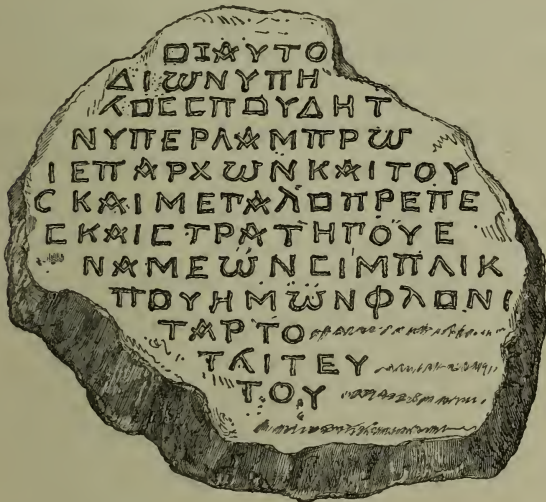 ΟΙΑΥΤΟ
ΔΙΩΝΥΠΗ
ΛΟΕϹϹΠΟΥΔΗΤ
ΝΥΠΕΡΛΑΜΠΡΩ
ΙΕΠΑΡΧΩΝΚΑΙΤΟΥ
ϹΚΑΙΜΕΓΑΛΟΠΡΕΠΕ
ϹΚΑΙϹΤΡΑΤΗΓΟΥΕ
ΝΑΜΕΩΝϹΙΜΠΛΙΚ
ΠΟΥΗΜΩΝΦΛΩΝΙ
ΤΑΡΤΟ
ΤΑΙΤΕΥ
ΤΟΥ